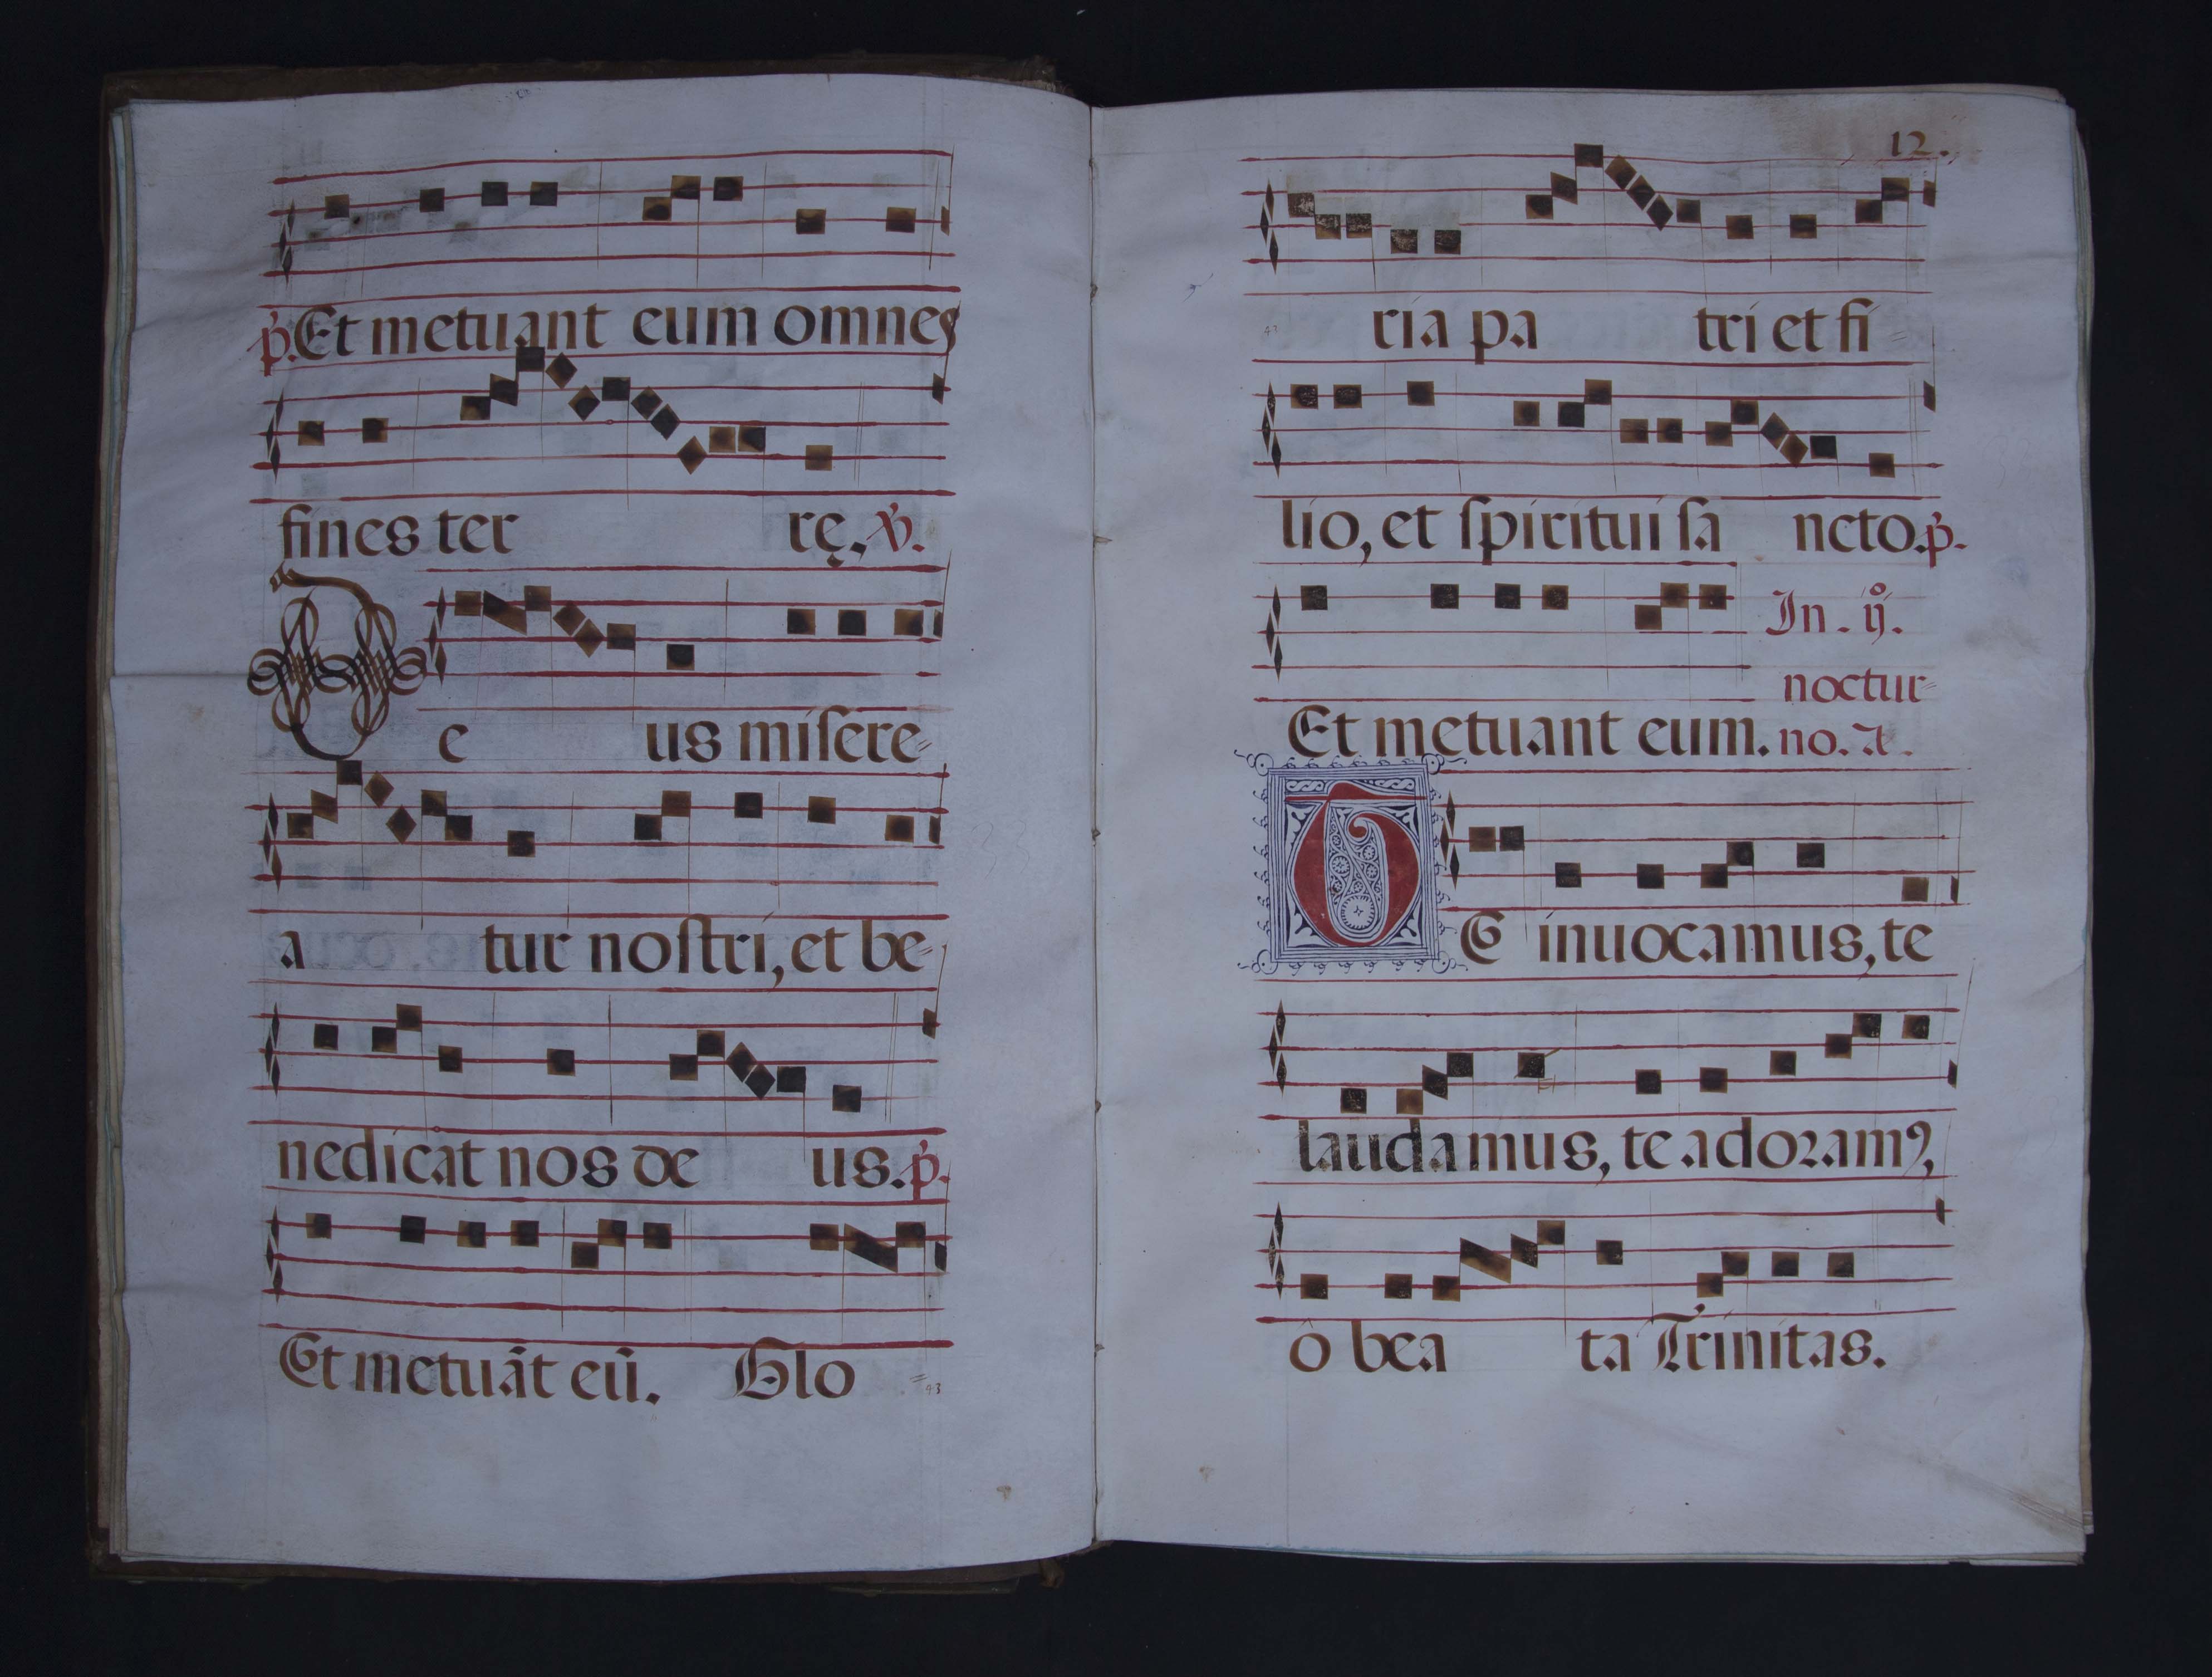 p. Et metuant eum omnes
fines ter rę. V.
De us misere=
a tur nostri, et be=
nedicat nos de us. p.
Et metuãt eũ. Glo =
43
12.
43
ria pa tri et fi=
lio, et spiritui sa ncto. p.
In. ij.º
noctur=
Et metuant eum. no. a.
TE inuocamus, te
laudamus, te adoramꝰ,
ô bea ta Trinitas.